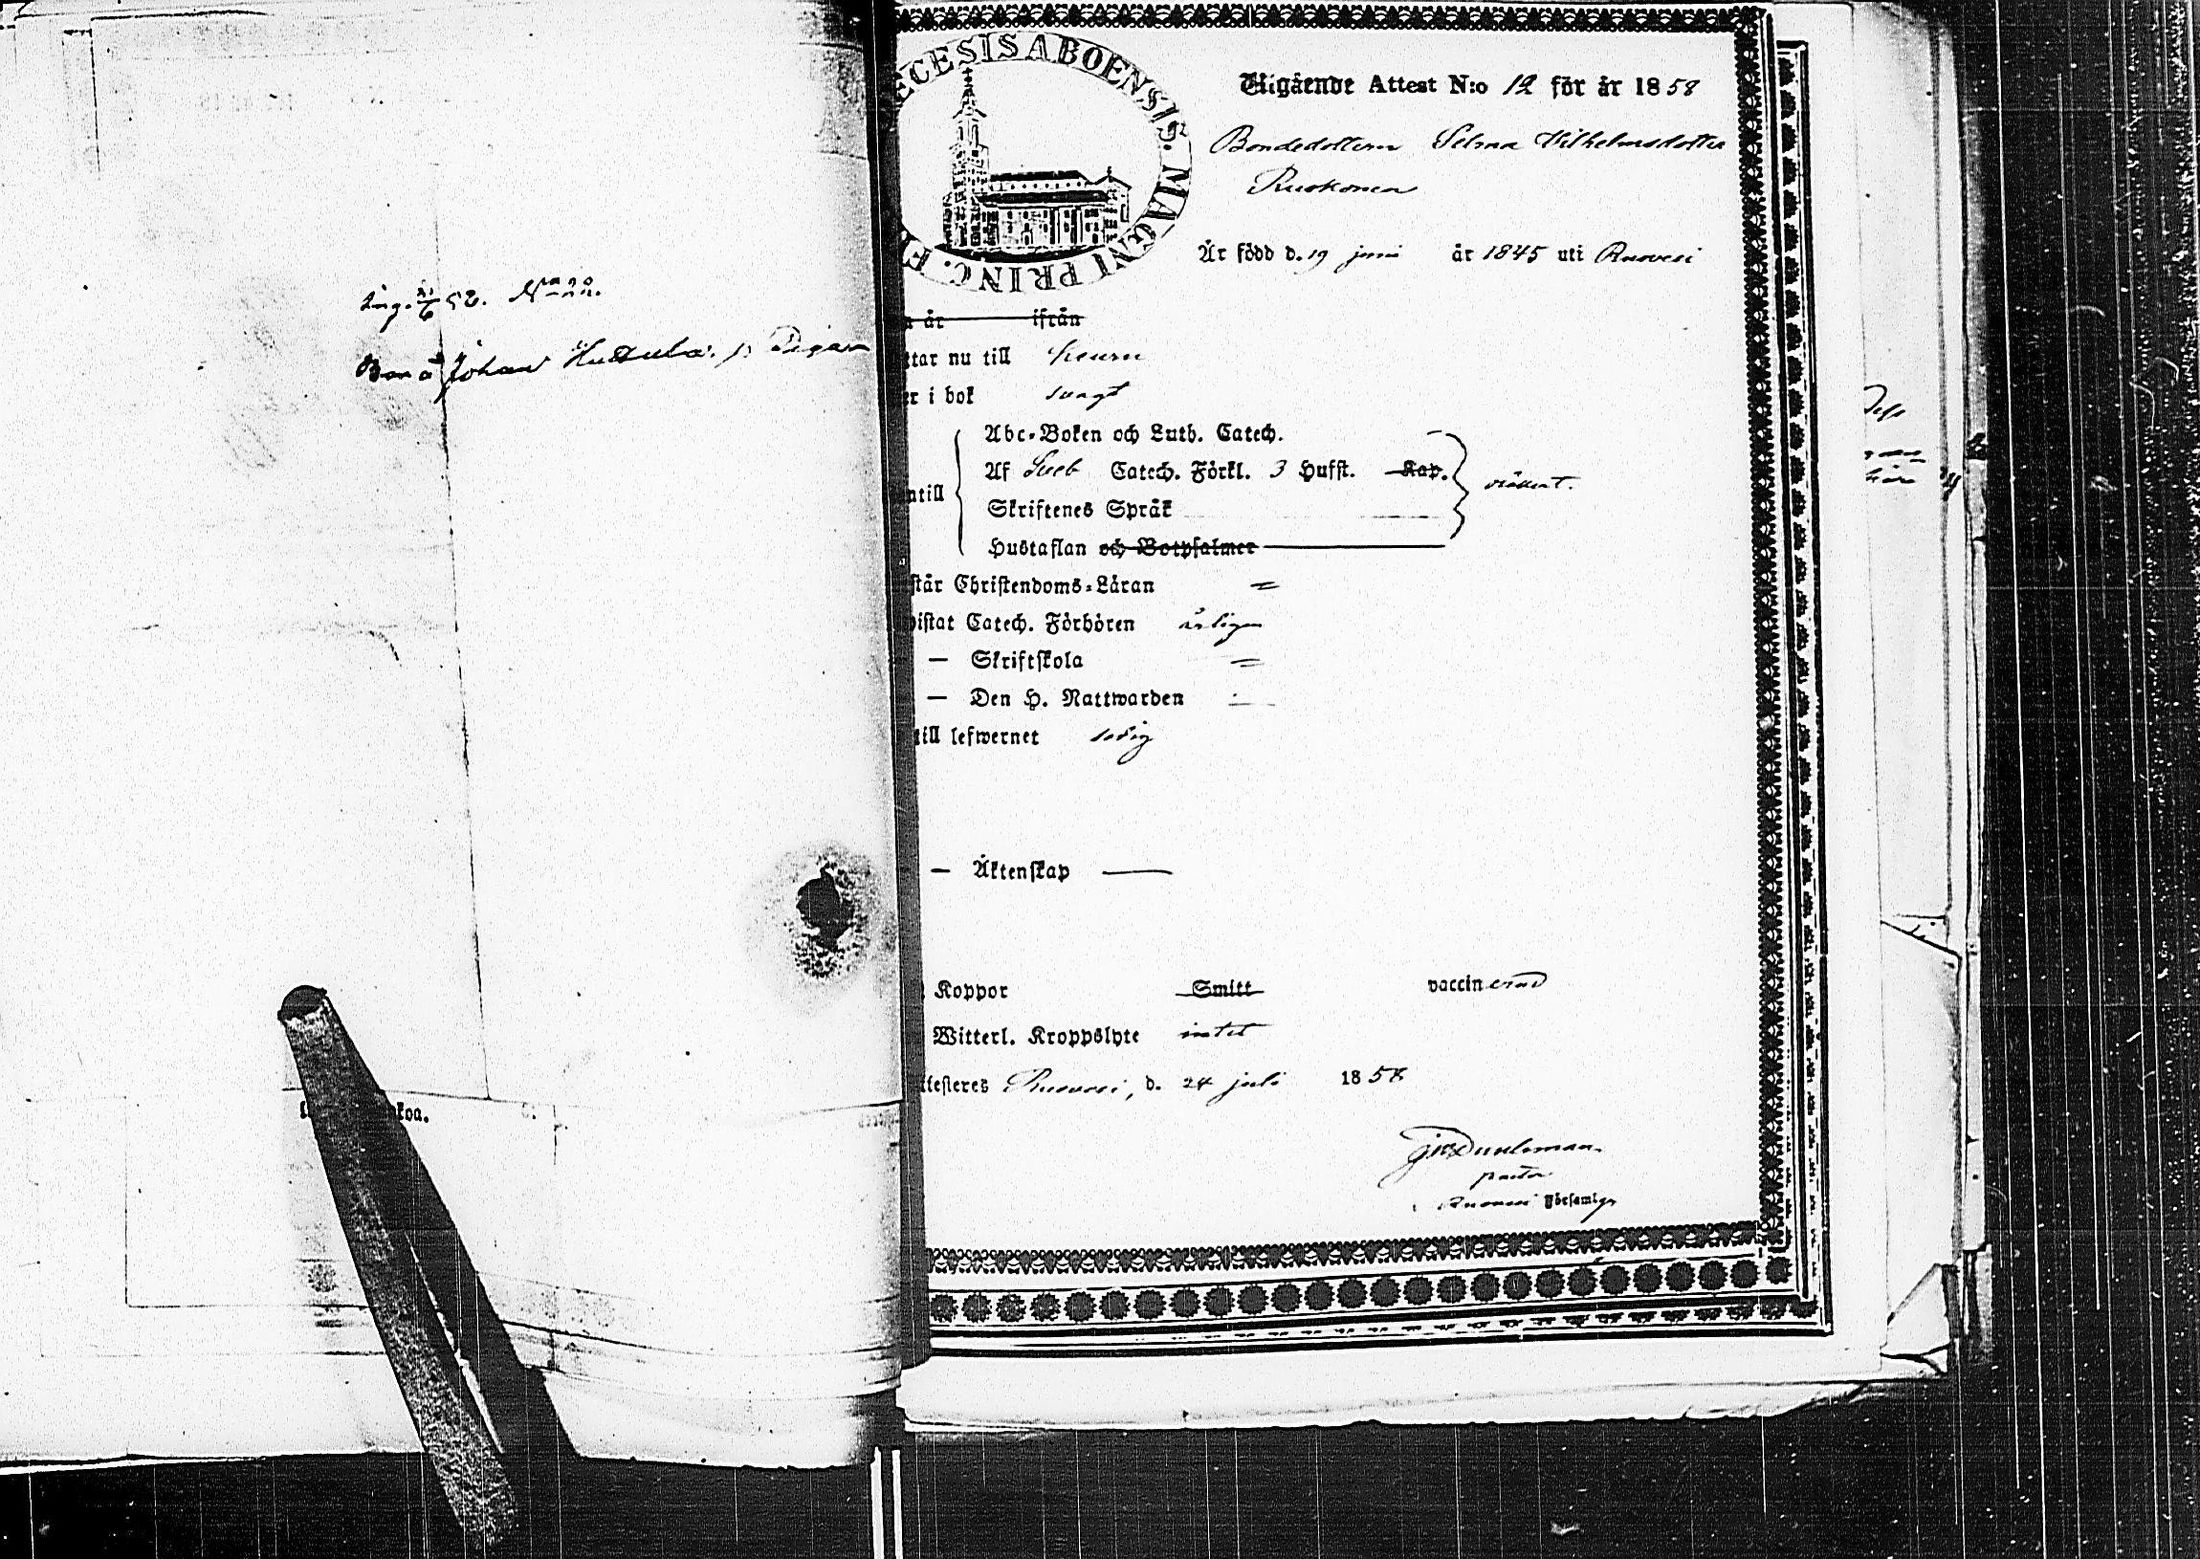 N:o 22.
Johan
ECESIS ABOENSIS. MAGNI PRINC. F
Utgående Attest N:o 12 för år 1858
Bondedottern Selma Vilhelmsdotter
Ruokonen
Är född d. 19 juni år 1845 uti Ruovesi
år ifrån
ttar nu till Keuru
er i bok svagt
Abc-Boken och Luth. Catech.
Af Sveb Catech. Förkl. 3 Hufst. Kap.
ntill
Skriftenes Språk
Hustaflan och Botpsalmer
står Christendoms-Läran =
vistat Catech. Förhören årligen
— Skriftskola =
— Den H. Nattwarden
till lefwernet sedig
— Äktenskap —
Koppor Smitt vaccinerad
Witterl. Kroppslyte intet
ttesteres Ruovesi, d. 24 juli 1858
pastor
Ruovesi Församlgr
koa.